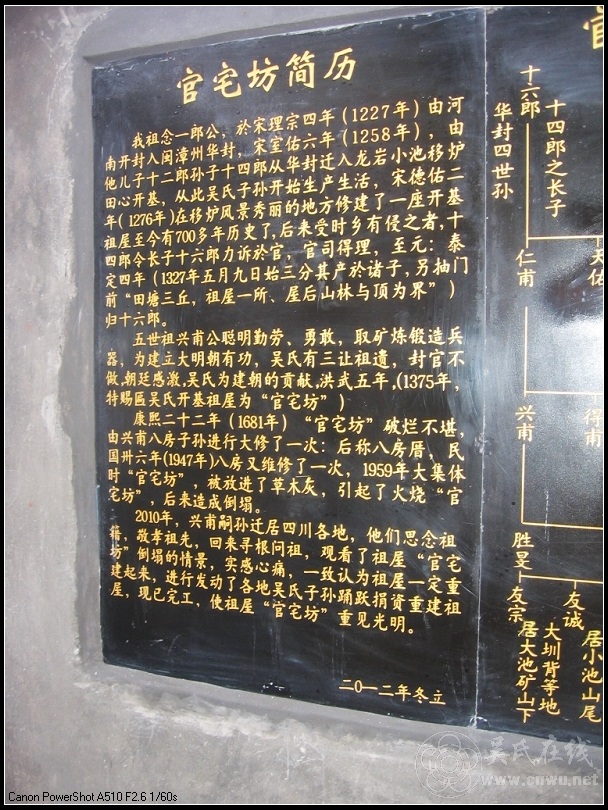 官宅坊简历
我祖念一郎公，於宋理宗四年（1227年）由河
南开封入闽漳州华封，宋室佑六年（1258年），由
他儿子十二郎孙子十四郎从华封迁入龙岩小池移炉
田心开基，从此吴氏子孙开始生产生活，宋德佑二
年（1276年）在移炉风景秀丽的地方修建了一座开基
祖屋至今有700多年历史了,后来受时乡有侵之者,十
四郎令长子十六郎力诉於官，官司得理，至元：泰
定四年（1327年五月九日始三分其产於诸子，另抽门
前“田塘三丘，祖屋一所、屋后山林与顶为界”）
归十六郎。
五世祖兴甫公聪明勤劳、勇敢，取矿炼锻造兵
器，为建立大明朝有功，吴氏有三让祖遗，封官不
做,朝廷感激,吴氏为建朝的贡献,洪武五年,(1375年,
特赐匾吴氏开基祖屋为“官宅坊”）
康熙二十二年（1681年）“官宅坊”破烂不堪，
由兴甫八房子孙进行大修了一次：后称八房厝，民
国卅六年(1947年)八房又维修了一次，1959年大集体
时“官宅坊”，被放进了草木灰，引起了火烧“官
宅坊”，后来造成倒塌。
2010年，兴甫嗣孙迁居四川各地，他们思念祖
籍，敬孝祖先，回来寻根问祖，观看了祖屋“官宅
坊”倒塌的情景，实感心痛，一致认为祖屋一定重
建起来，进行发动了各地吴氏子孙踊跃捐资重建祖
屋，现已完工，使祖屋“官宅坊”重见光明。
二0一二年冬立
十六郎
华封四世孙
十四郎之长子
仁甫
天佑
兴甫
得甫
胜旻
友宗
居大池矿山下
大圳背等地
友诚
居小池山尾
吴氏在线
www.cnwu.net
Canon PowerShot A510 F2.6 1/60s